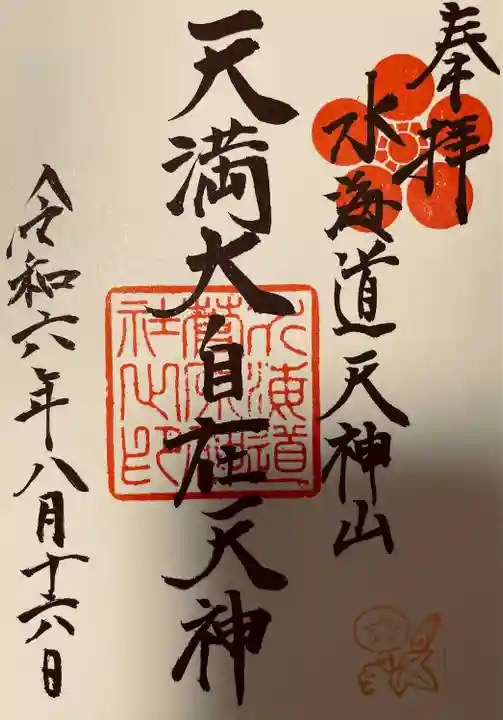 奉拝
水海道天神山
天満大自在天神
水海道
菅原神
社之印
令和六年八月十六日